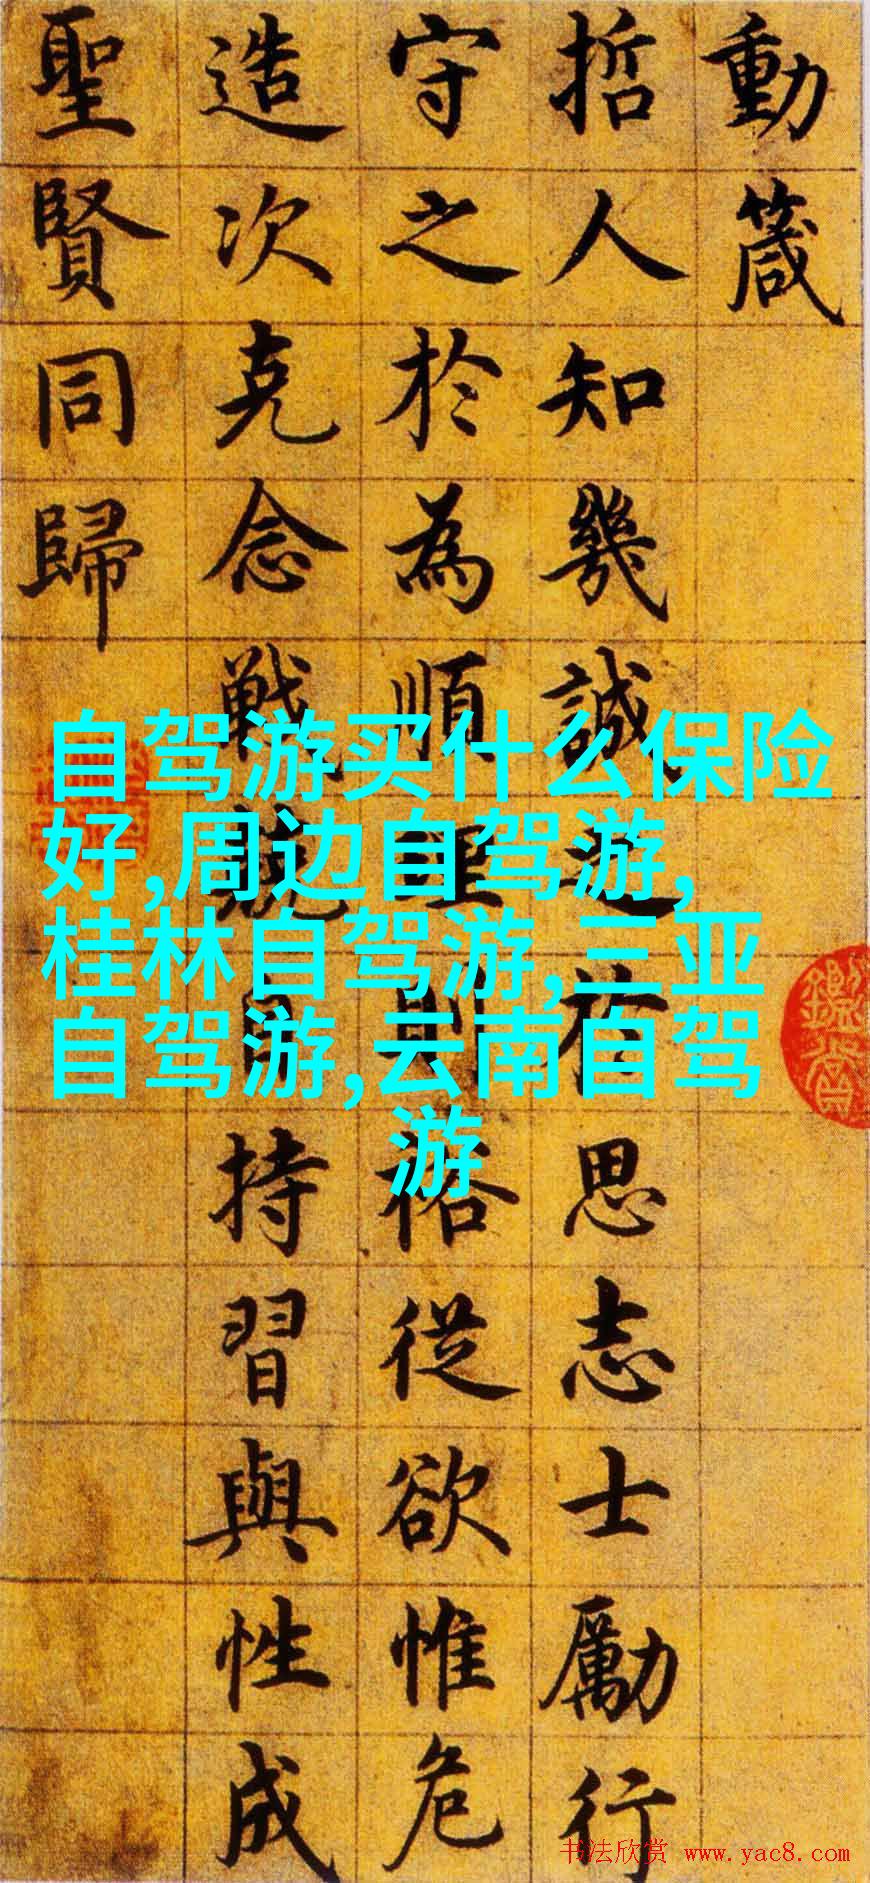 動箴
哲人知幾誠之於思志士勵行
守之於為順理則裕從欲惟危
造次克念戰兢自持習與性成
聖賢同歸
自驾游买什么保险
好,周边自驾游,
桂林自驾游,三亚
自驾游,云南自驾
游
书法欣赏 www.yac8.com